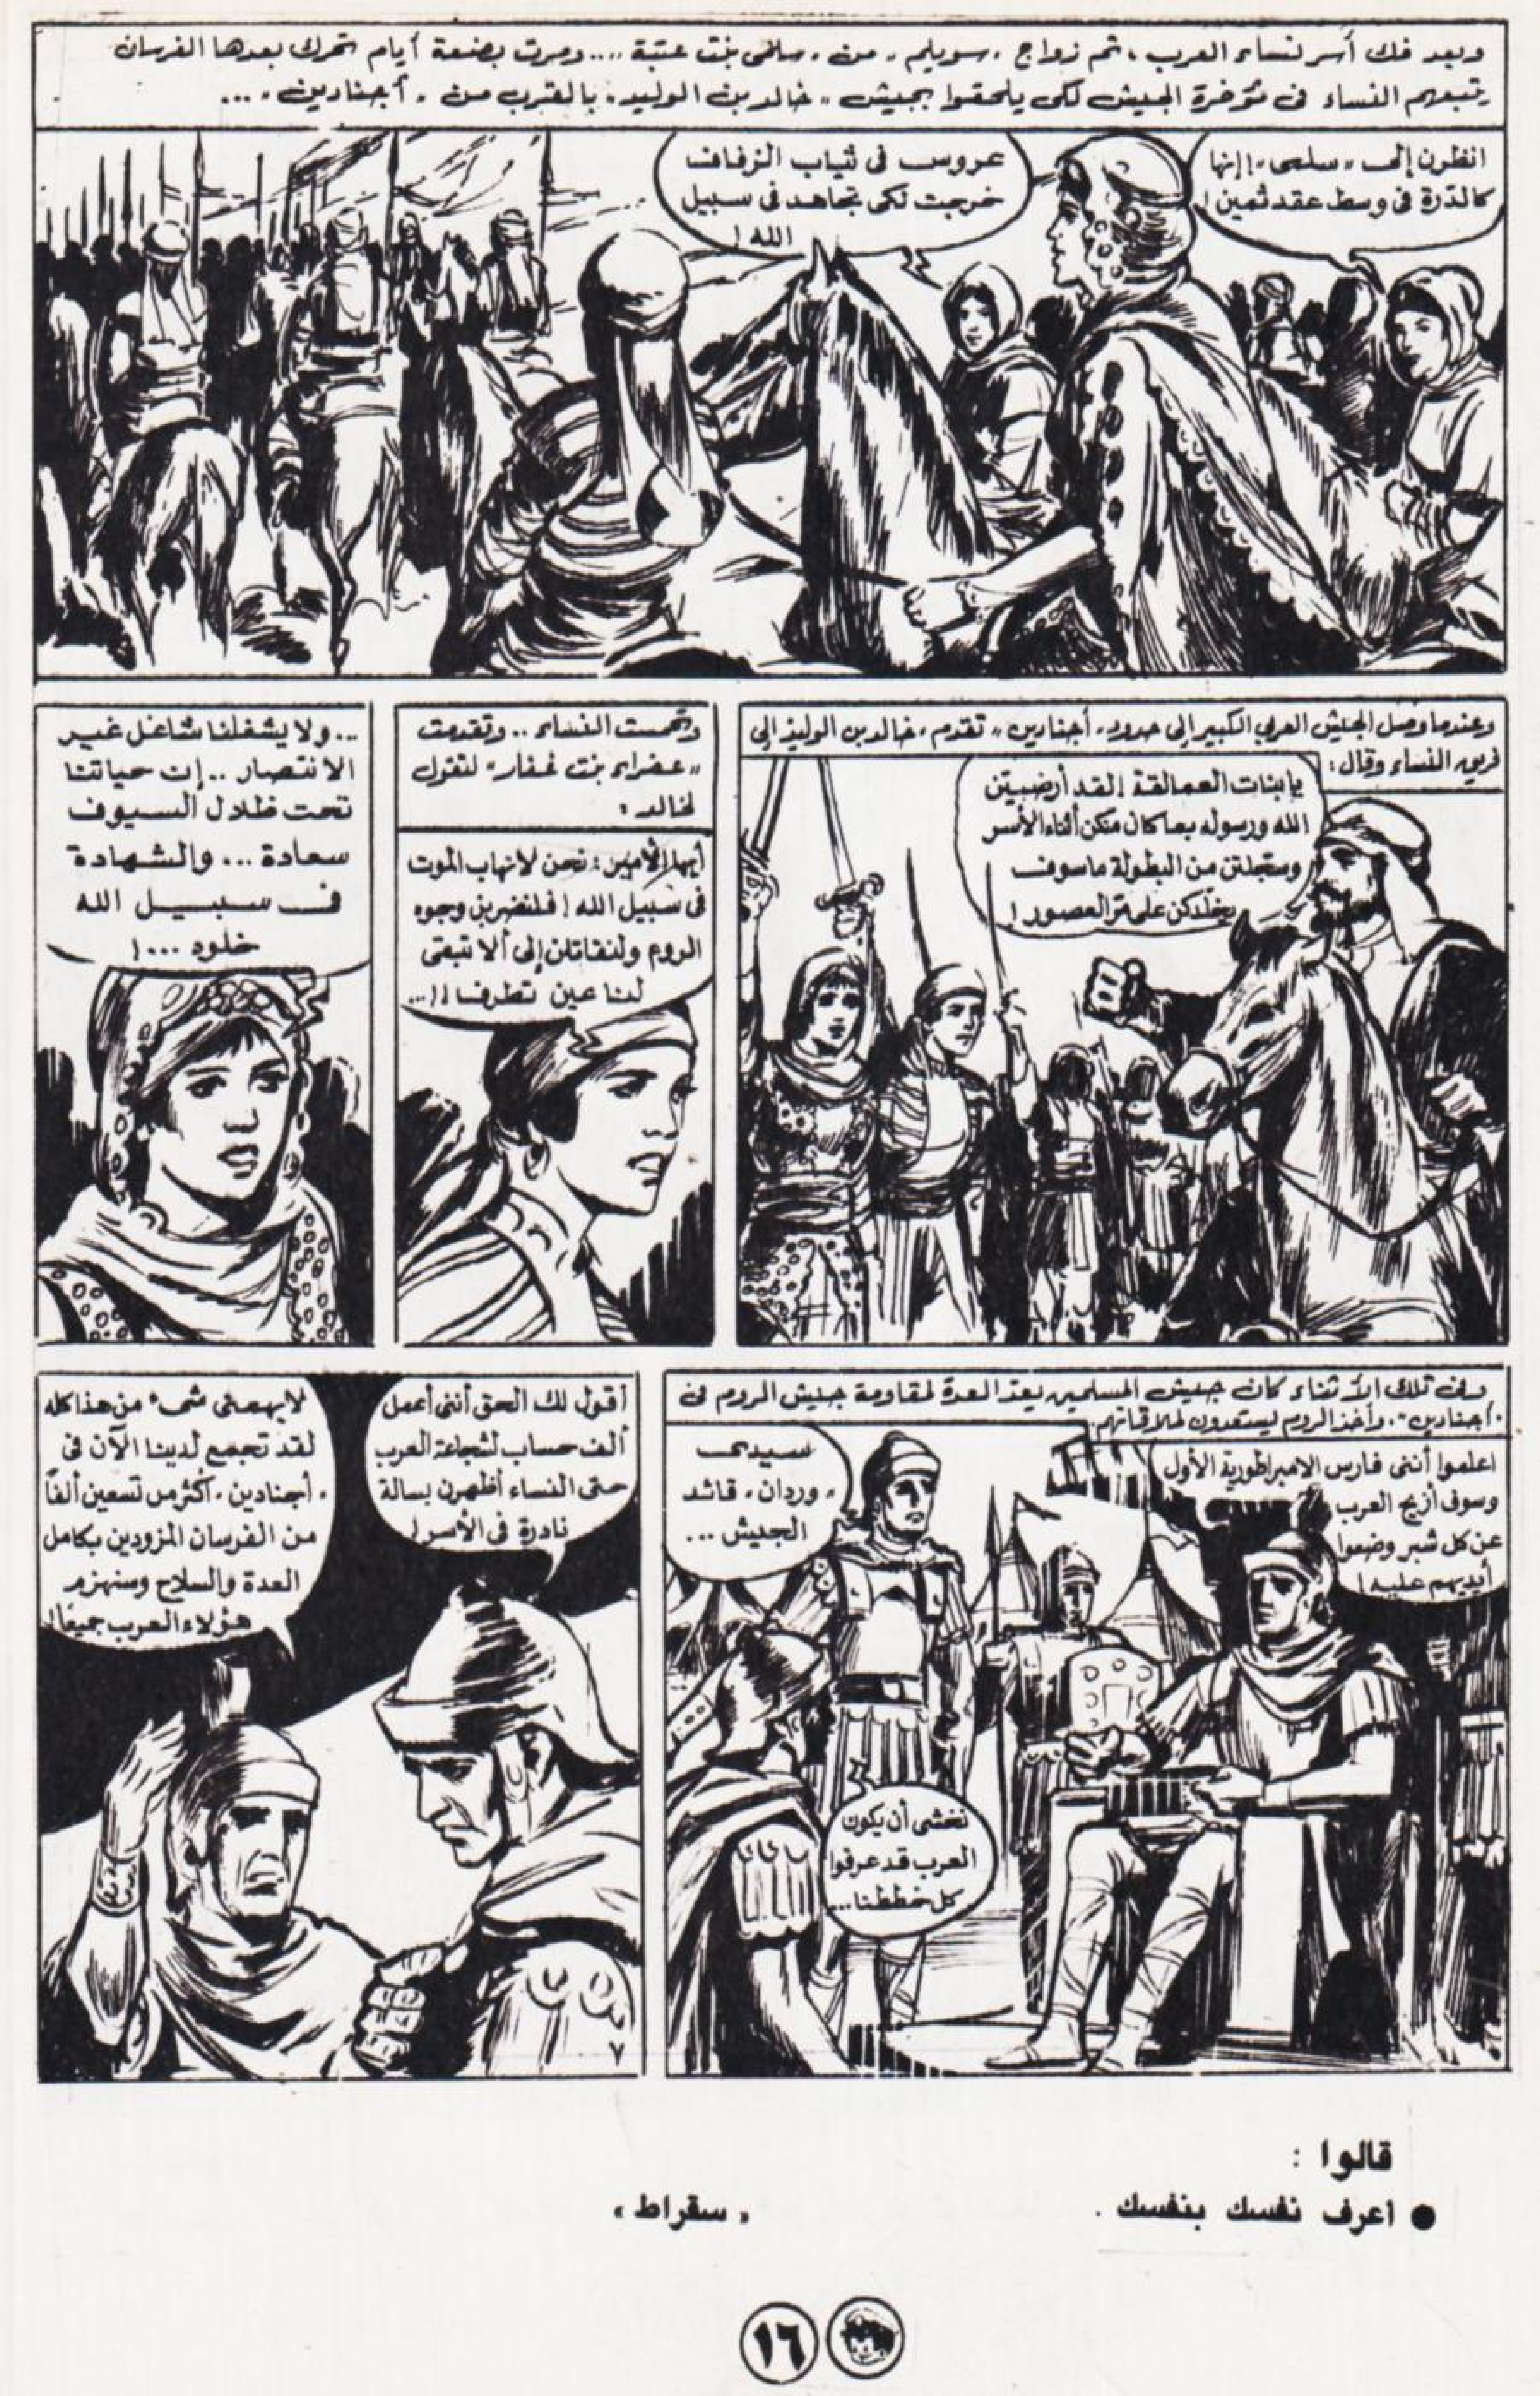 وبعد فك أسر نساء العرب ، تم زواج "سويلم" من "سلمى بنت عتبة" .... ومرت بضعة أيام تحرك بعدها الفرسان
يتبعهم النساء فى مؤخرة الجيش لكى يلحقوا بجيش "خالد بن الوليد" بالقرب من "أجنادين" ...
انظرن إلى "سلمى" ! إنها
كالدرة فى وسط عقد ثمين !
عروس فى ثياب الزفاف
خرجت لكى تجاهد فى سبيل
الله !
وعندما وصل الجيش العربى الكبير إلى حدود "أجنادين" تقدم "خالد بن الوليد" إلى
فريق النساء وقال :
يا بنات العمالقة ! لقد أرضيتن
الله ورسوله بما كان منكن أثناء الأسر
وسجلتن من البطولة ما سوف
يخلدكن على مر العصور !
وتحمست النساء .. وتقدمت
"عفراء بنت غفار" لتقول
لخالد :
أيها الأمير : نحن لا نهاب الموت
فى سبيل الله ! فلنضربن وجوه
الروم ولنقاتلن إلى ألا تبقى
لنا عين تطرف !! ...
... ولا يشغلنا شاغل غير
الانتصار .. إن حياتنا
تحت ظلال السيوف
سعادة ... والشهادة
فى سبيل الله
خلود ... !
وفى تلك الأثناء كان جيش المسلمين يعد العدة لمقاومة جيش الروم فى
"أجنادين" . وأخذ الروم يستعدون لملاقاتهم.
اعلموا أننى فارس الامبراطورية الأول
وسوف أزيح العرب
عن كل شبر وضعوا
أيديهم عليه !
سيدى
"وردان" قائد
الجيش ...
نخشى أن يكون
العرب قد عرفوا
كل خططنا ...
أقول لك الحق أننى أعمل
ألف حساب لشجاعة العرب
حتى النساء أظهرن بسالة
نادرة فى الأسر !
لا يهمنى شىء من هذا كله
لقد تجمع لدينا الآن فى
"أجنادين" أكثر من تسعين ألفاً
من الفرسان المزودين بكامل
العدة والسلاح وسنهزم
هؤلاء العرب جميعًا !
٧
قالوا :
● اعرف نفسك بنفسك . « سقراط »
١٦